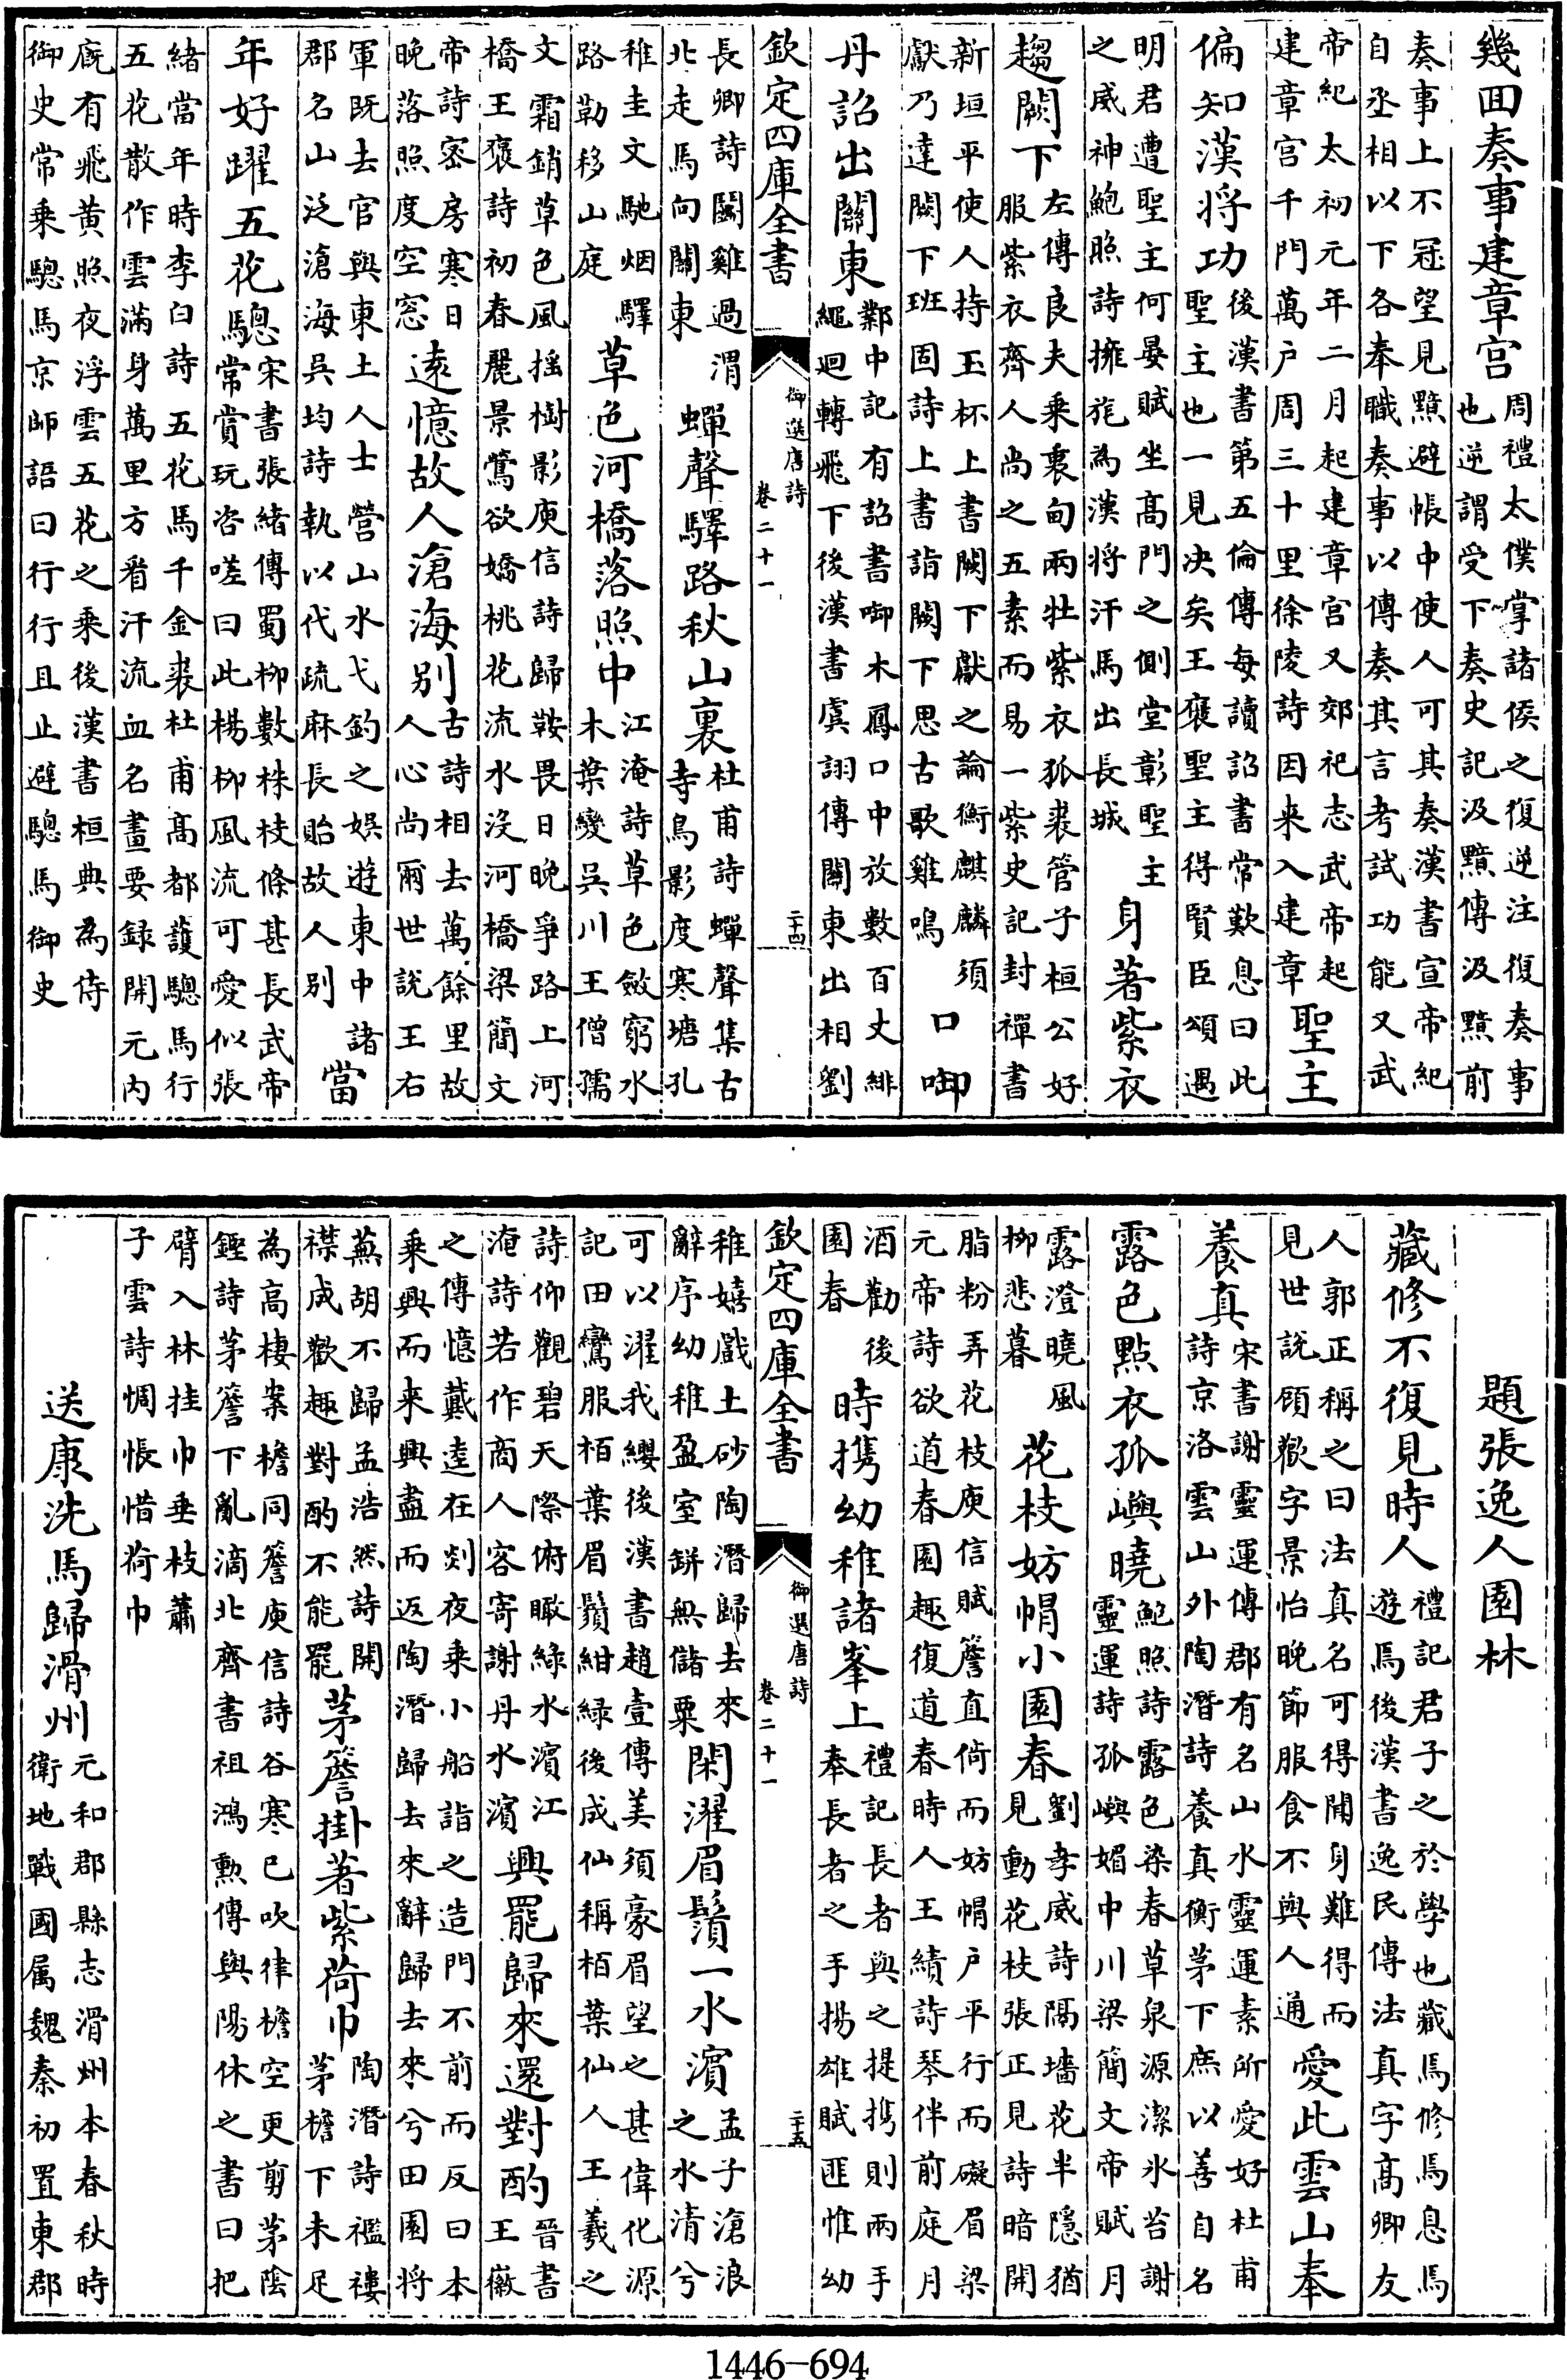 幾回奏事建章宫周禮太僕掌諸侯之復逆注復奏事也逆謂受下奏史記汲黯傳汲黯前
奏事上不冠望見黯避帳中使人可其奏漢書宣帝紀自丞相以下各奉職奏事以傳奏其言考試功能又武
帝紀太初元年二月起建章宫又郊祀志武帝起建章宫千門萬户周三十里徐陵詩因来入建章聖主
偏知漢将功後漢書第五倫傳每讀詔書常歎息曰此聖主也一見决矣王襃聖主得賢臣頌遇
明君遭聖主何晏賦坐髙門之側堂彰聖主之威神鮑照詩擁旄為漢将汗馬出長城身著紫衣
趨闕下左傳良夫乗衷甸兩牡紫衣狐裘管子桓公好服紫衣齊人尚之五素而易一紫史記封禪書
新垣平使人持玉杯上書闕下獻之論衡麒麟須獻乃達闕下班固詩上書詣闕下思古歌雞鳴口啣
丹詔出關東鄴中記有詔書啣木鳳口中放數百丈緋繩迴轉飛下後漢書虞詡傳關東出相劉
欽定四庫全書 御選唐詩 卷二十一 二十四
長卿詩鬭雞過渭北走馬向關東蟬聲驛路秋山裏杜甫詩蟬聲集古寺鳥影度寒塘孔
稚圭文馳烟驛路勒移山庭草色河橋落照中江淹詩草色斂窮水木葉變吳川王僧孺
文霜銷草色風摇樹影庾信詩歸鞍畏日晚爭路上河橋王襃詩初春麗景鶯欲嬌桃花流水没河橋梁簡文
帝詩密房寒日晚落照度空窓遠憶故人滄海别古詩相去萬餘里故人心尚爾世説王右
軍既去官與東土人士營山水弋釣之娯遊東中諸郡名山泛滄海吳均詩執以代疏麻長貽故人别當
年好躍五花驄宋書張緒傳蜀柳數株枝條甚長武帝常賞玩咨嗟曰此楊柳風流可愛似張
緒當年時李白詩五花馬千金裘杜甫髙都護驄馬行五花散作雲滿身萬里方看汗流血名畫要録開元内
廐有飛黄照夜浮雲五花之乗後漢書桓典為侍御史常乗驄馬京師語曰行行且止避驄馬御史
題張逸人園林
藏修不復見時人禮記君子之於學也藏焉修焉息焉遊焉後漢書逸民傳法真字髙卿友
人郭正稱之曰法真名可得聞身難得而見世説顧歡字景怡晚節服食不與人通愛此雲山奉
養真宋書謝靈運傳郡有名山水靈運素所愛好杜甫詩京洛雲山外陶潛詩養真衡茅下庶以善自名
露色點衣孤嶼曉鮑照詩露色染春草泉源潔氷苔謝靈運詩孤嶼媚中川梁簡文帝賦月
露澄曉風柳悲暮花枝妨帽小園春劉孝威詩隔墻花半隱猶見動花枝張正見詩暗開
脂粉弄花枝庾信賦簷直倚而妨帽户平行而礙眉梁元帝詩欲道春園趣復道春時人王績詩琴伴前庭月
酒勸後園春時携幼稚諸峯上禮記長者與之提携則兩手奉長者之手揚雄賦匪惟幼
欽定四庫全書 御選唐詩 卷二十一 二十五
稚嬉戲土砂陶潛歸去來辭序幼稚盈室缾無儲粟閑濯眉鬚一水濱孟子滄浪之水清兮
可以濯我纓後漢書趙壹傳美須豪眉望之甚偉化源記田鸞服栢葉眉鬚紺緑後成仙稱栢葉仙人王羲之
詩仰觀碧天際俯瞰緑水濱江淹詩若作商人客寄謝丹水濱興罷歸來還對酌晉書王徽
之傳憶戴逵在剡夜乗小船詣之造門不前而反曰本乗興而来興盡而返陶潛歸去來辭歸去來兮田園将
蕪胡不歸孟浩然詩開襟成歡趣對酌不能罷茅簷掛著紫荷巾陶潛詩襤褸茅檐下未足
為高棲案檐同簷庾信詩谷寒已吹律檐空更剪茅陰鏗詩茅簷下亂滴北齊書祖鴻勲傳與陽休之書曰把
臂入林挂巾垂枝蕭子雲詩惆悵惜荷巾
送康洗馬歸滑州元和郡縣志滑州本春秋時衛地戰國属魏秦初置東郡
1446-694